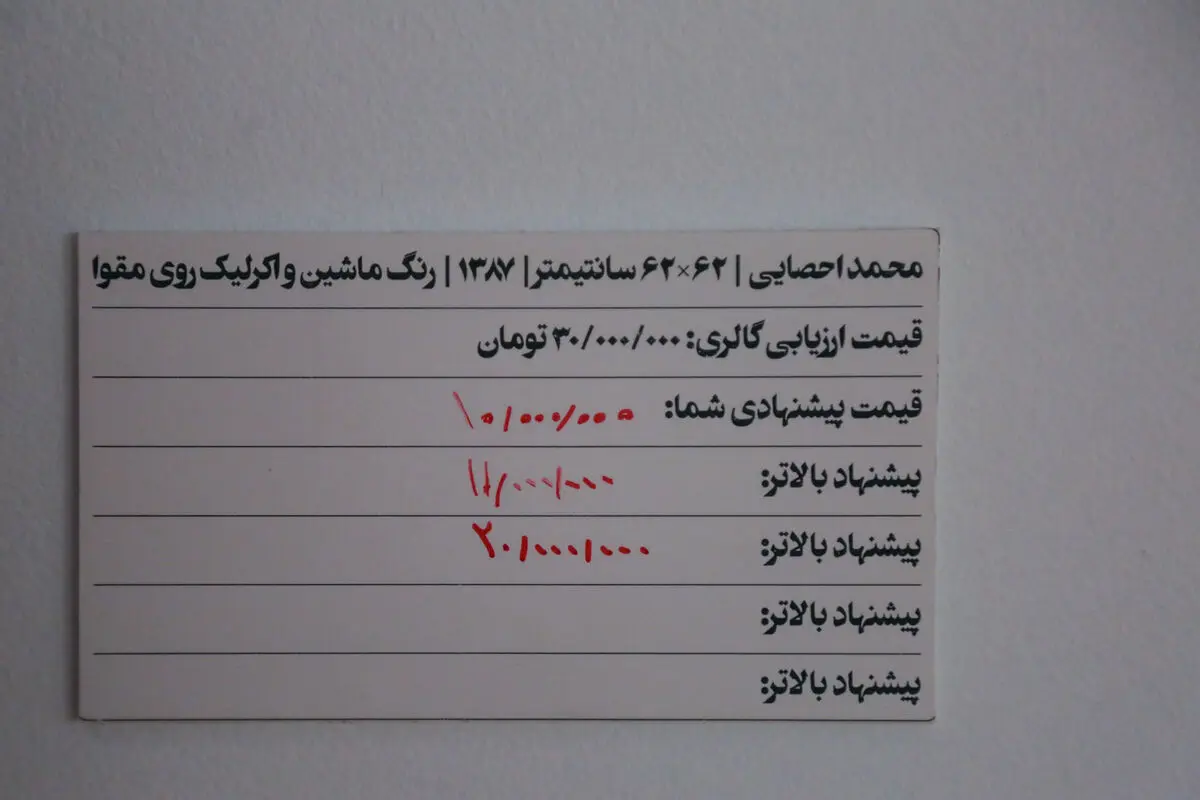 محمد احصایی | ۶۲×۶۲ سانتیمتر | ۱۳۸۷ | رنگ ماشین و اکرلیک روی مقوا
قیمت ارزیابی گالری: ۳۰/۰۰۰/۰۰۰ تومان
قیمت پیشنهادی شما: ۱۰/۰۰۰/۰۰۰
پیشنهاد بالاتر: ۱۱/۰۰۰/۰۰۰
پیشنهاد بالاتر: ۲۰/۰۰۰/۰۰۰
پیشنهاد بالاتر:
پیشنهاد بالاتر: